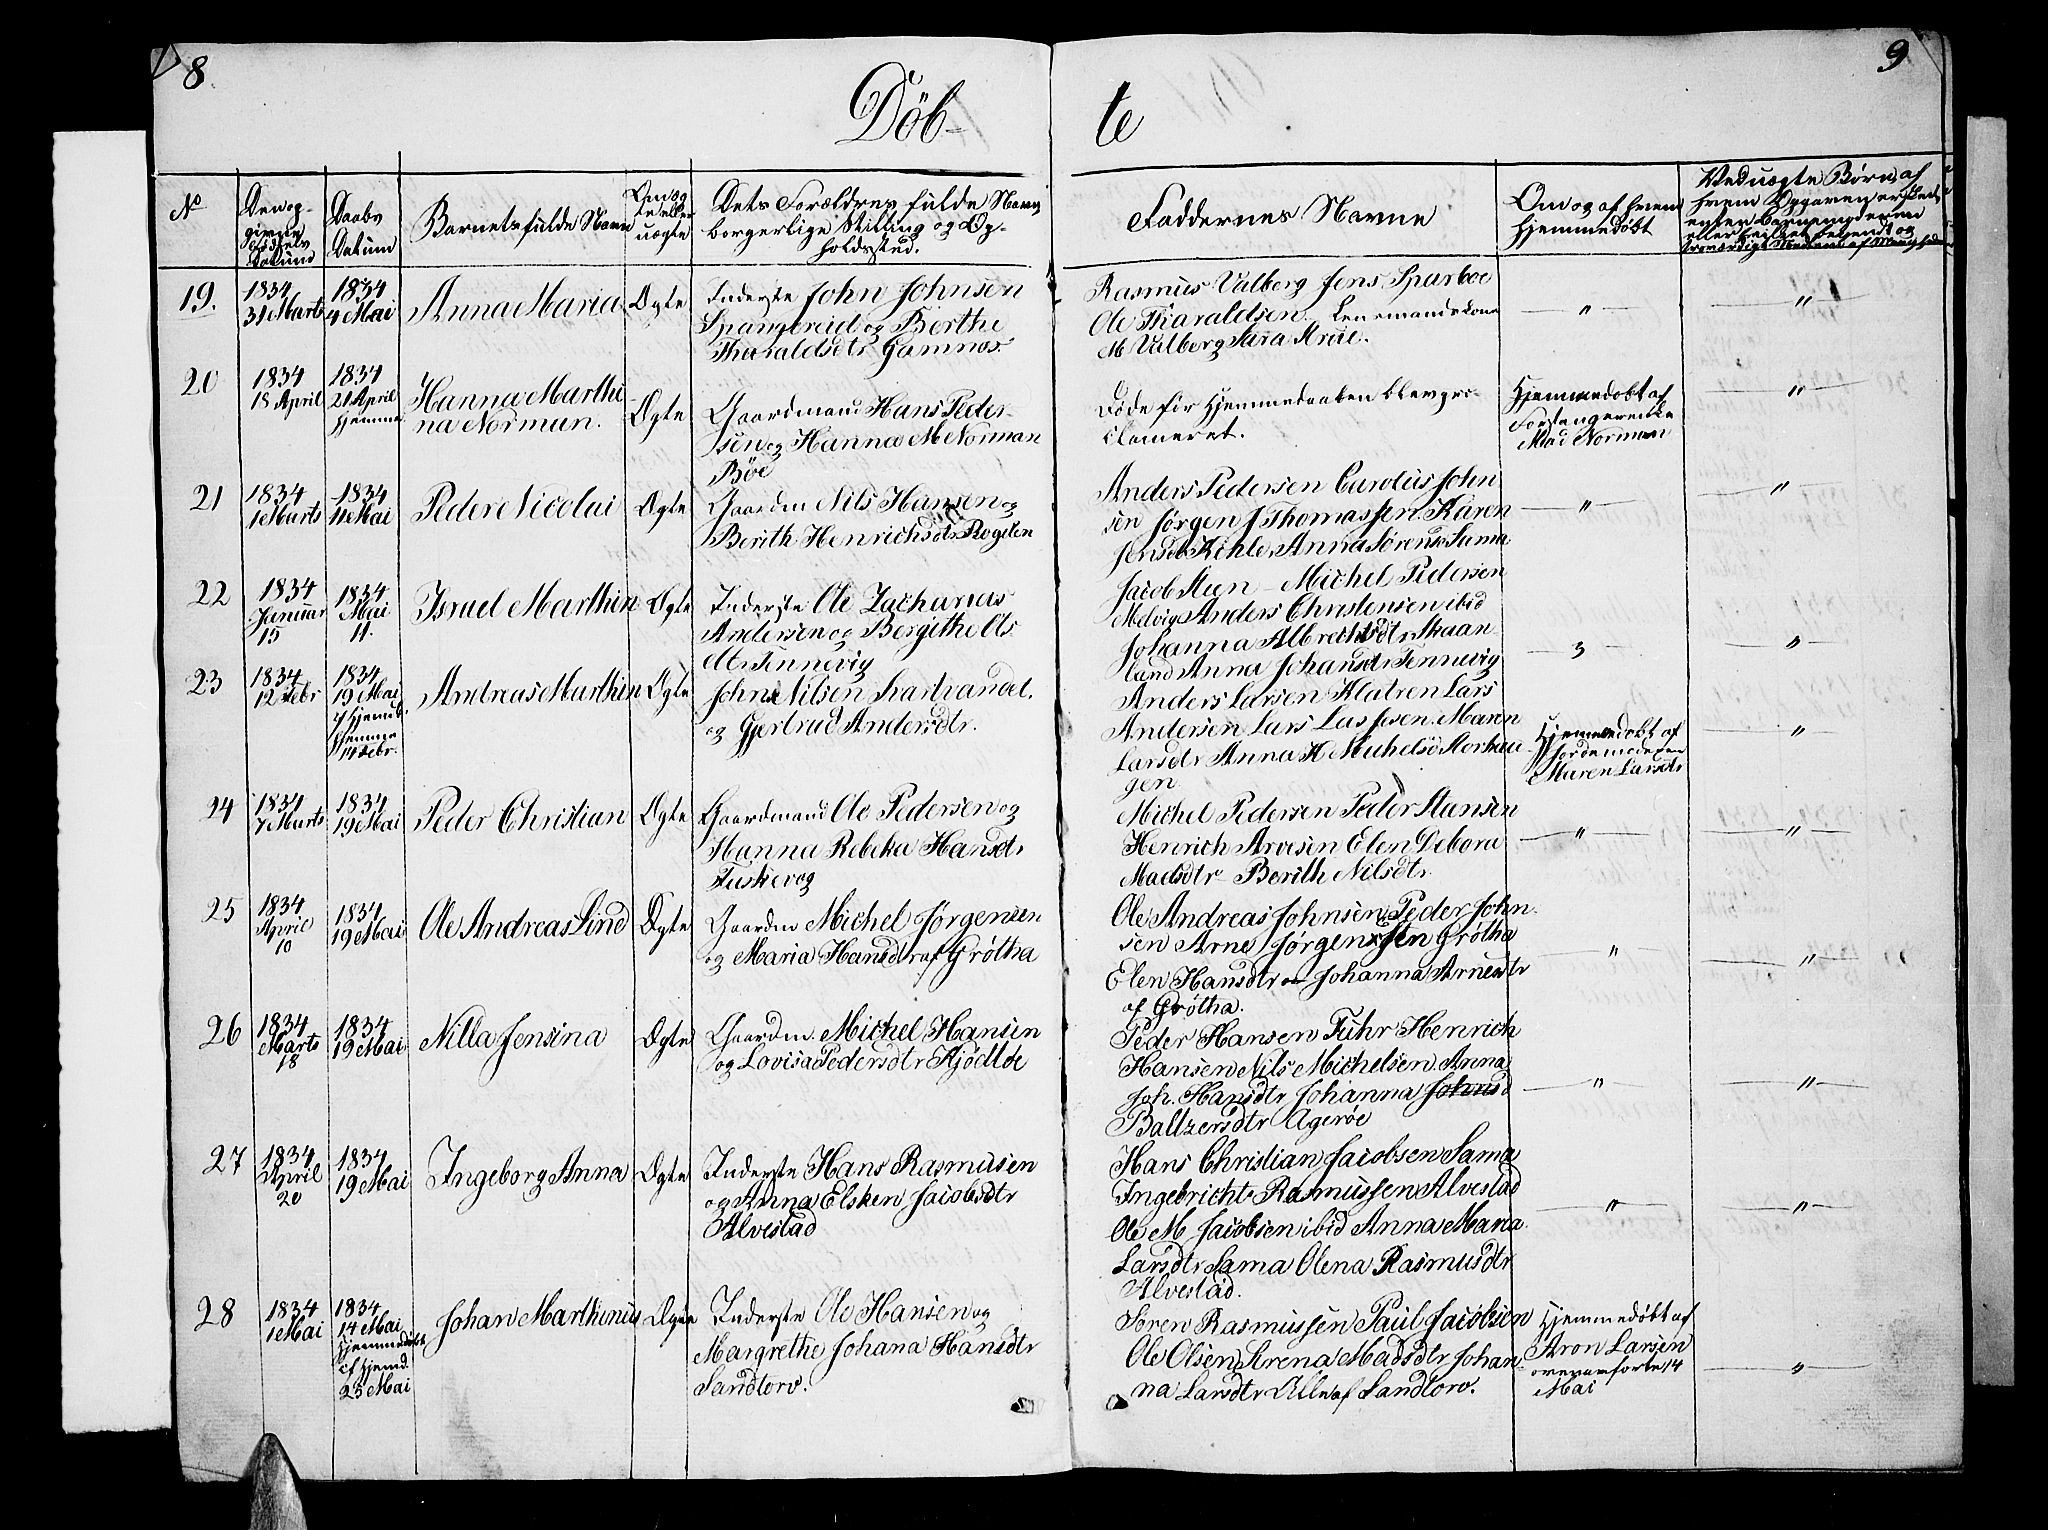 8
9
Döb-
te
No
Den op-
givne
Fødsels
Datum
Daabs
Datum
Barnets fulde Navn
Om æg
te eller
uægte
Dets Forældres fulde Navn
borgerlige Stilling og Op-
holdssted.
Faddernes Navne
Om og af hvem
hjemmedøbt
Ved uægte Børn, af
19.
1834
31 Marts
1834
4 Mai
Anna Maria
Ægte
Inderste John Johnsen
Spangereid og Berthe
Tharaldsdtr Gamnæs
Rasmus Valberg Jens Sparboe
Ole Tharaldsen Lensmandskone
M Valberg Sara Krüe.
"
"
20
1834
18 April
1834
21 April
hjemme
Hanna Marthi
na Norman.
Ægte
Gaardmand Hans Peder-
sen og Hanna M Norman
Böe
Døde før Hjemmedaaben blev pro-
clameret.
Hjemmedøbt af
Mad Norman
"
21
1834
1 Marts
1834
11 Mai
Peder Nicolai
Ægte
Gaardm Nils Hansen og
Berith Henrichsdtr Rogsten
Anders Pedersen Carolus John
sen Jørgen J Thomassen Karen
Jensdtr Kihle, Anna Sørensd Sama
"
"
22
1834
Januar
15
1834
Mai
11.
Israel Marthin
Ægte
Inderste Ole Zacharias
Andersen og Bergithe Ols
dtr Tennevig
Jacob Steen - Michel Pedersen
Melvig Anders Christensen ibid
Johanna Albrechtsdtr Skaan
land Anna Johansdtr Tennevig
"
"
23
1834
12 Febr
1834
19 Mai
hjemme
14 Febr.
Andreas Marthin
Ægte
John Nilsen
og Gjertrud Andersdtr.
Anders Larsen Klatren Lars
Andersen Lars Larssen. Maren
Larsdtr Anna K Michelsd Storhau
gen
Hjemmedøbt af
Jordemoderen
Maren Larsdtr
"
24
1834
7 Marts
1834
19 Mai
Peder Christian
Ægte
Gaardmand Ole Pedersen og
Hanna Rebeka Hansdtr
Fuskevog
Michel Pedersen Peder Hansen
Henrich Arvesen Elen Debora
Madsdtr Berith Nilsdtr.
"
"
25
1834
April
10
1834
19 Mai
Ole Andreas Lind
Ægte
Gaardm Michel Jørgensen
og Maria Hansdtr af Grøtha
Ole Andreas Johnsen, Peder John
sen Arne Jørgenssen Grøtha
Elen Hansdtr Johanna Arnesdtr
af Grøtha.
"
"
26
1834
Marts
18
1834
19 Mai
Nilla Jensina
Ægte
Gaardm. Michel Hansen
og Lovisa Pedersdtr Kjødlöe
Peder Hansen Fuhr Henrich
Hansen Nils Michelsen Anna
Joh. Hansdtr Johanna Johnsd
Baltzersdtr Ageröe
"
"
27
1834
April
20
1834
19 Mai
Ingeborg Anna
Ægte
Inderste Hans Rasmusen
og Anna Elsken Jacobsdtr
Alvestad
Hans Christian Jacobsen Sama
Ingebricht Rasmussen Alvestad
Ole M Jacobsen ibid Anna Maria
Larsdtr Sama Olena Rasmusdtr
Alvestad.
"
"
28
1834
1 Mai
1834
14 Mai
Hjemmedøbt
23 Mai
Johan Marthinus
Ægte
Inderste Ole Hansen og
Margrethe Johana Hansdtr
Sandtorv.
Sören Rasmussen Paul Jacobsen
Ole Olsen Serena Madsdtr Johan-
na Larsdtr Alle af Sandtorv.
Hjemmedøbt af
Aron Larsen
14
Mai
"